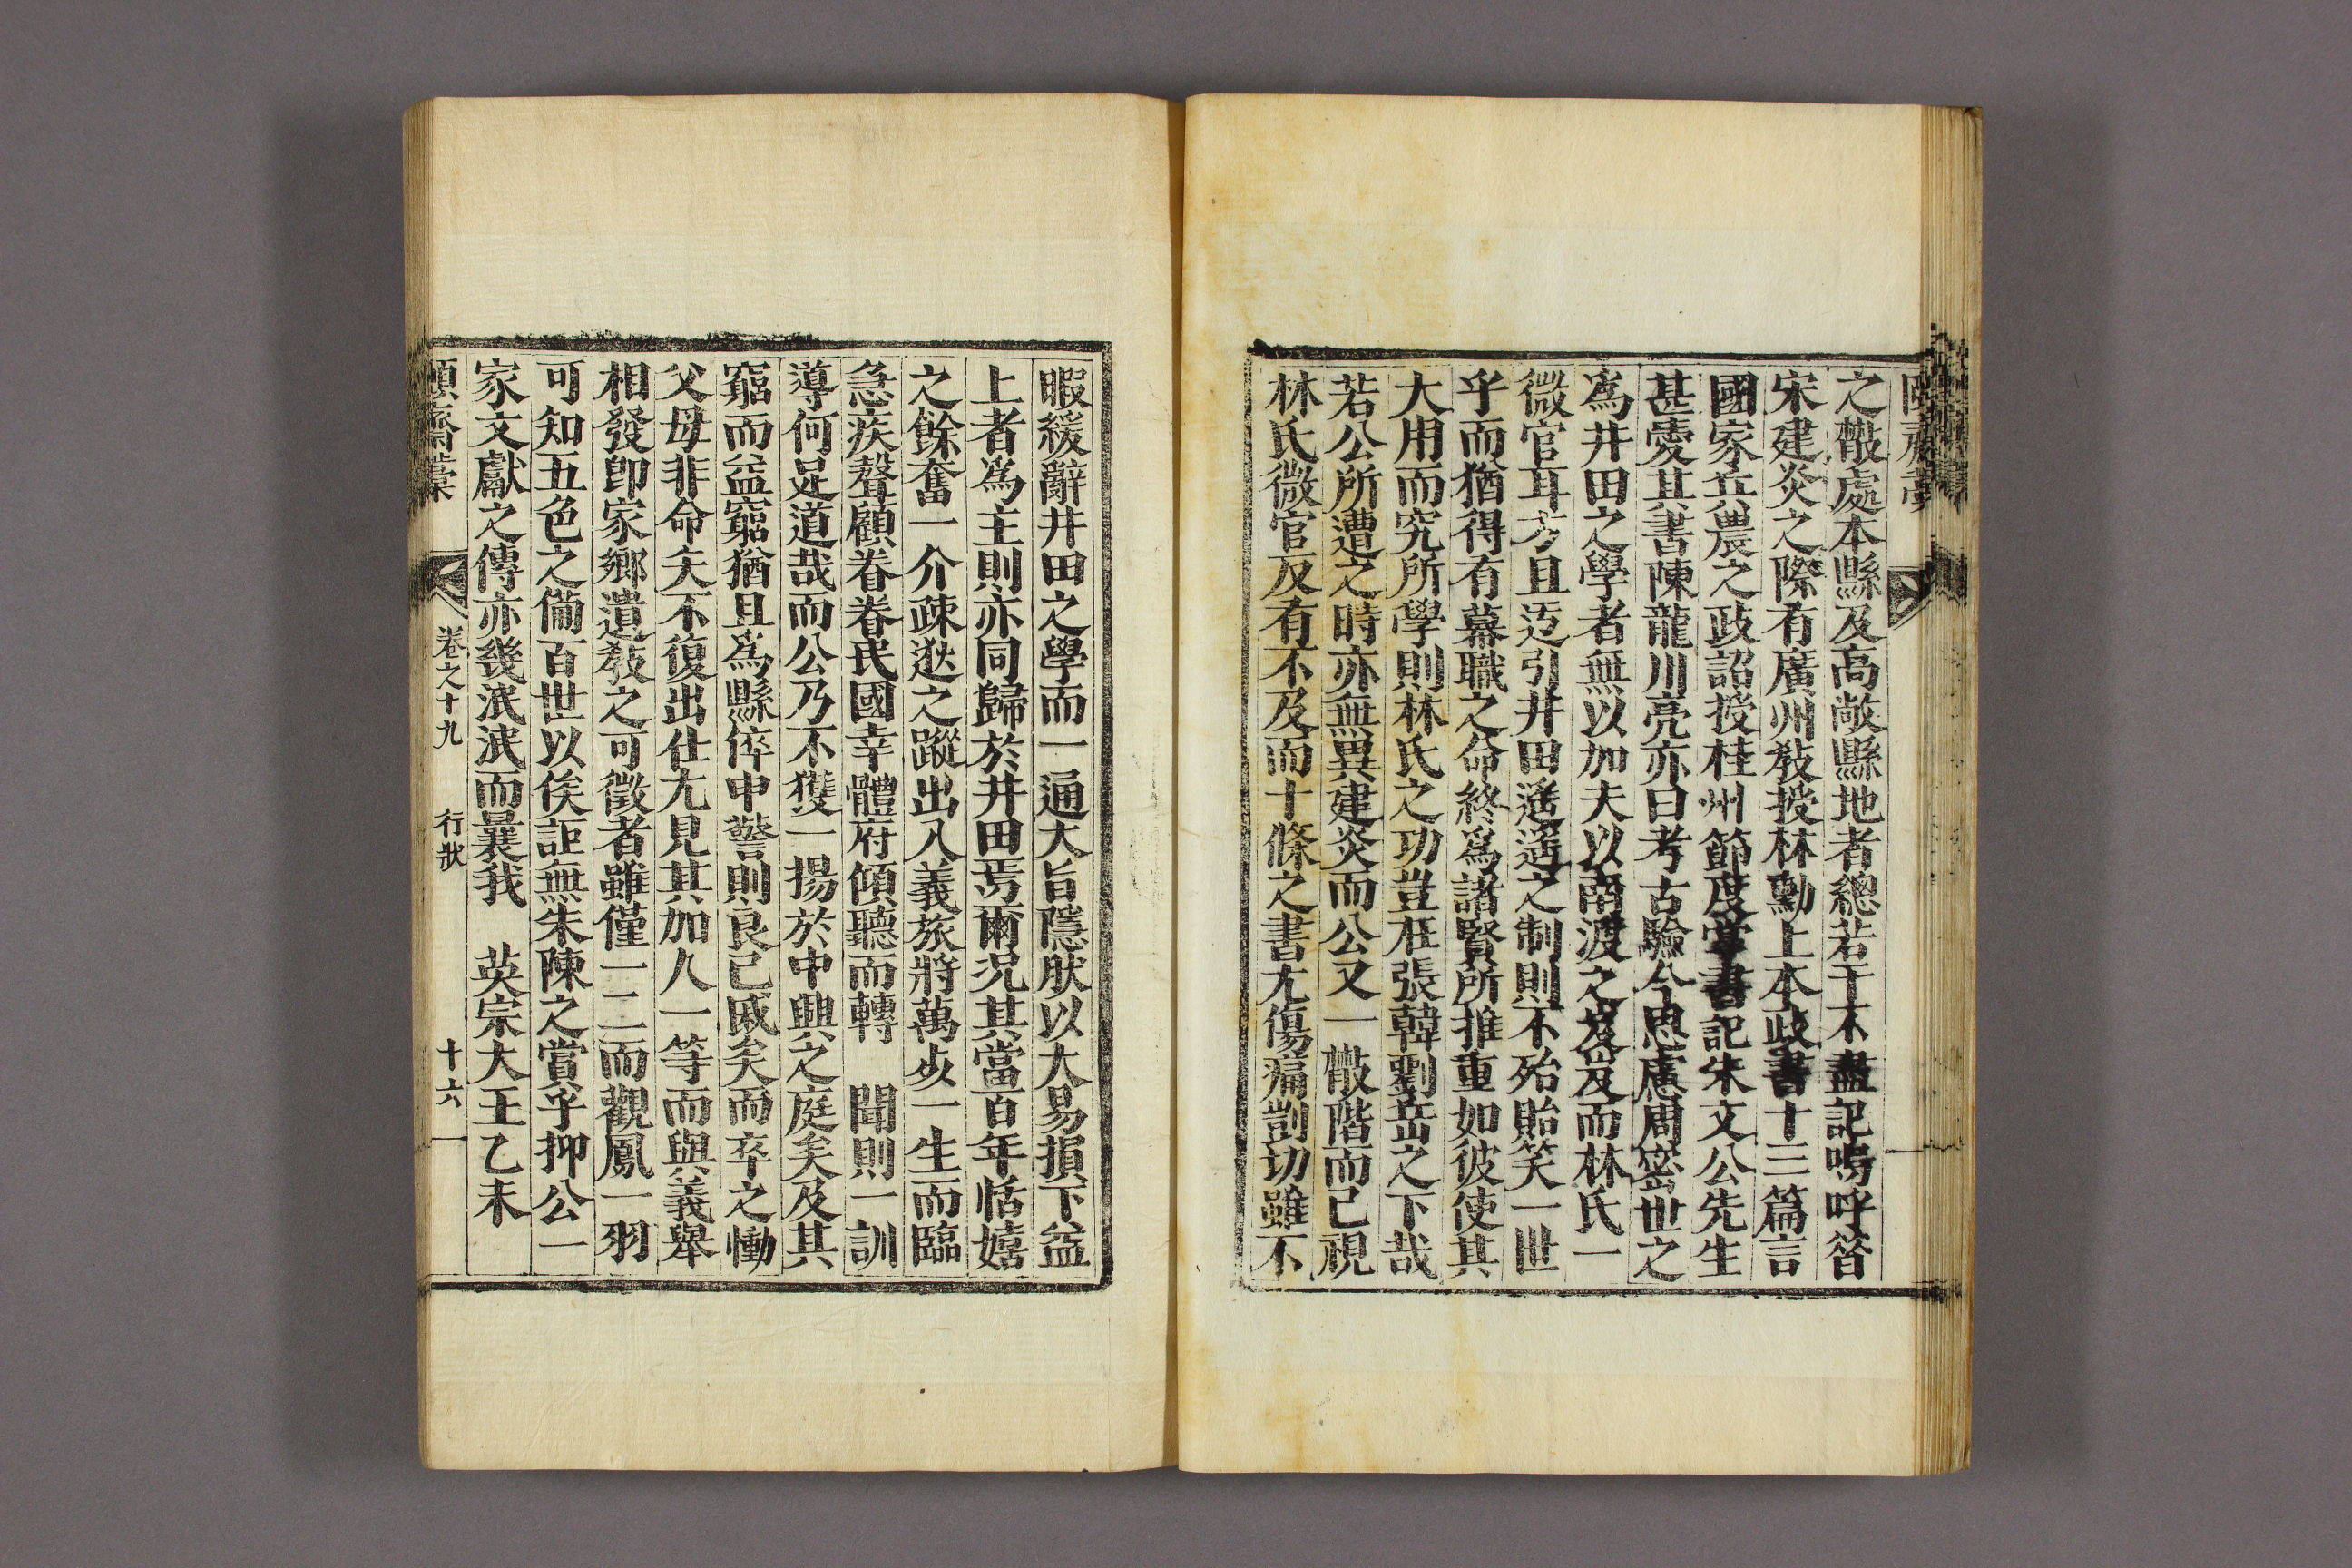 之徵處本縣及高敞縣地者總若干不盡記嗚呼昔
宋建炎之際有廣州敎授林勳上本政書十三篇言
國家兵農之政詔授桂州節度掌書記朱文公先生
甚愛其書陳龍川亮亦曰考古驗今思慮周密世之
爲井田之學者無以加夫以南渡之岌岌而林氏一
微官耳方且迃引井田遙遙之制則不殆貽笑一世
乎而猶得有幕職之命終爲諸賢所推重如彼使其
大用而究所學則林氏之功豈在張韓劉岳之下哉
若公所遭之時亦無異建炎而公又一散階而已視
林氏微官反有不及而十條之書尤傷痛剴切雖不
暇緩辭井田之學而一通大旨隱肰以大易損下益
上者爲主則亦同歸於井田焉爾况其當百年恬嬉
之餘奮一介疎逖之蹤出入義旅將萬歩一生而臨
急疾聲顧眷眷民國幸軆府傾聽而轉 聞則一訓
導何足道哉而公乃不獲一揚於中興之庭矣及其
窮而益窮猶且爲縣倅申警則良已戚矣而卒之慟
父母非命矢不復出仕尤見其加人一等而與義舉
相發卽家鄉遺敎之可徵者雖僅一二而觀鳳一羽
可知五色之備百世以俟詎無朱陳之賞乎抑公一
家文獻之傳亦幾泯泯而曩我 英宗大王乙未
頤齋藁 卷之十九 行狀 十六